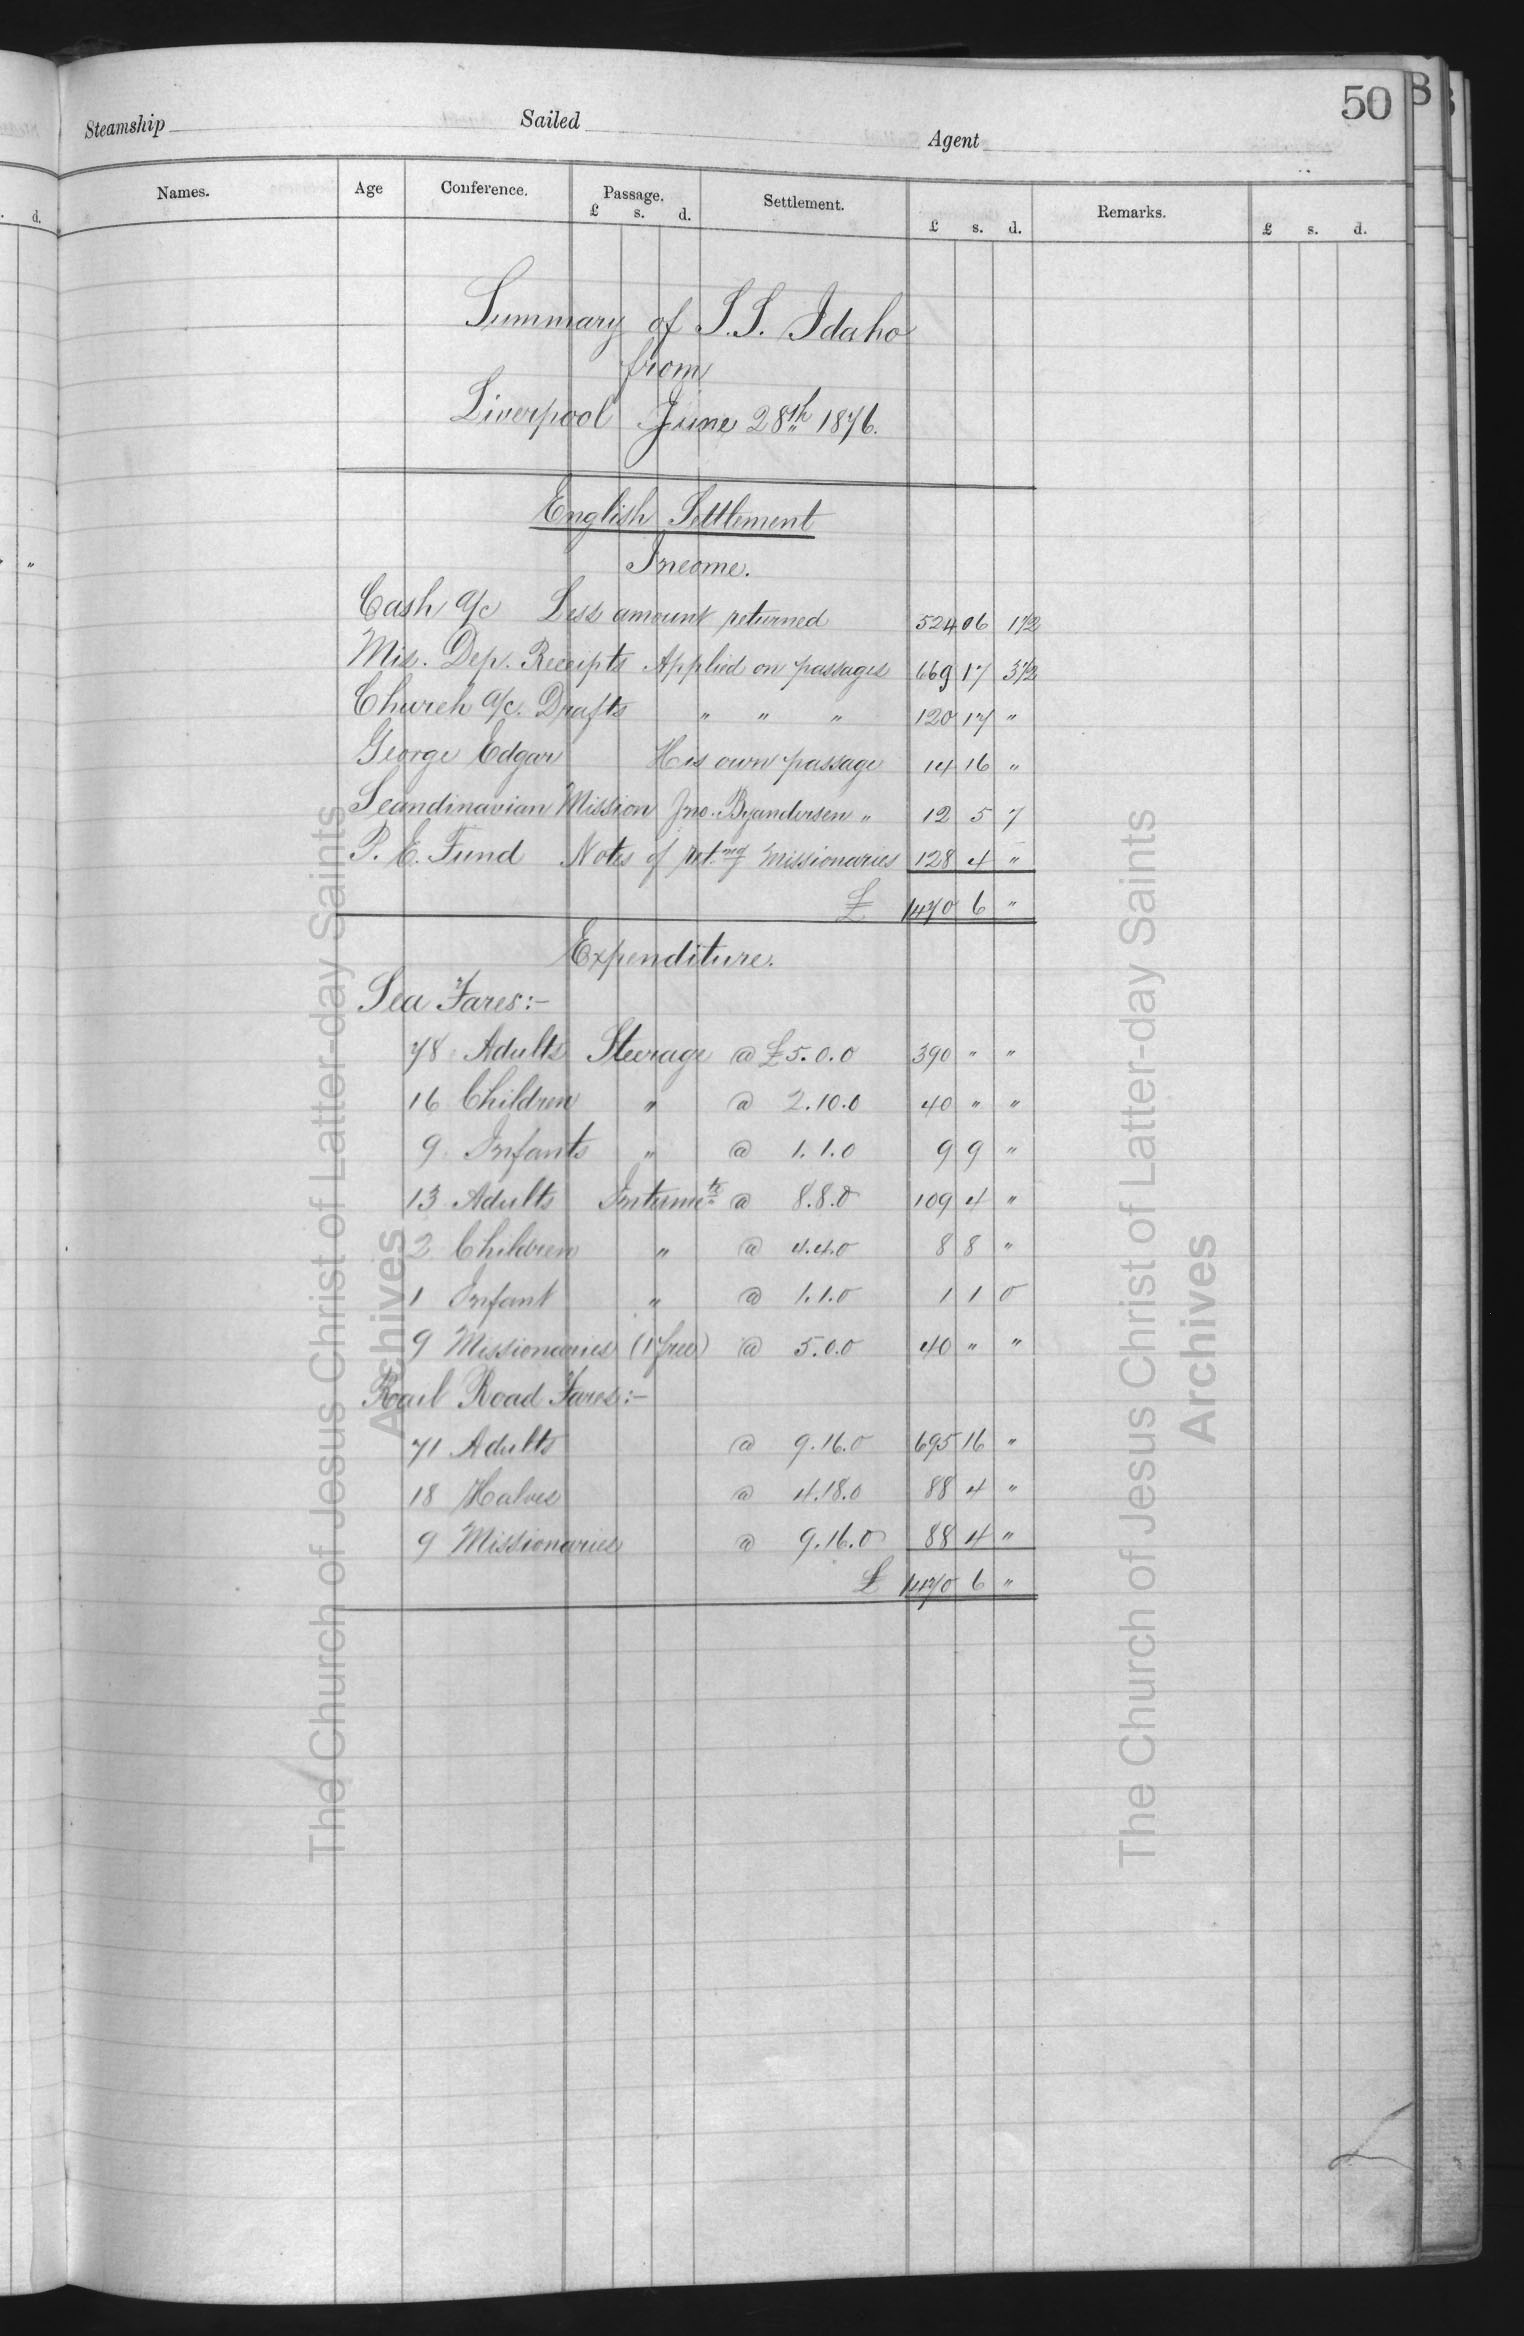 50
Steamship Sailed Agent
Names. Age Conference. Passage. Settlement. Remarks.
£ s. d. £ s. d. £ s. d.
Summary of S.S. Idaho
from
Liverpool June 28th 1876.
English Settlement
Income.
Cash a/c Less amount returned 524 06 1 1/2
Mis. Dep. Receipts Applied on passages 669 17 3 1/2
Church a/c. Drafts " " " 120 17 "
George Edgar His own passage 14 16 "
Scandinavian Mission Jno. Byandersen " 12 5 7
P. E. Fund Notes of ret.ing Missionaries 128 4 "
£ 1470 6 "
Expenditure.
Sea Fares:-
78 Adults Steerage @ £5.0.0 390 " "
16 Children " @ 2.10.0 40 " "
9 Infants " @ 1.1.0 9 9 "
13 Adults Interme.te @ 8.8.0 109 4 "
2 Children " @ 4.4.0 8 8 "
1 Infant " @ 1.1.0 1 1 0
9 Missionaries (1 free) @ 5.0.0 40 " "
Rail Road Fares:-
71 Adults @ 9.16.0 695 16 "
18 Halves @ 4.18.0 88 4 "
9 Missionaries @ 9.16.0 88 4 "
£ 1470 6 "
The Church of Jesus Christ of Latter-day Saints
Archives
The Church of Jesus Christ of Latter-day Saints
Archives